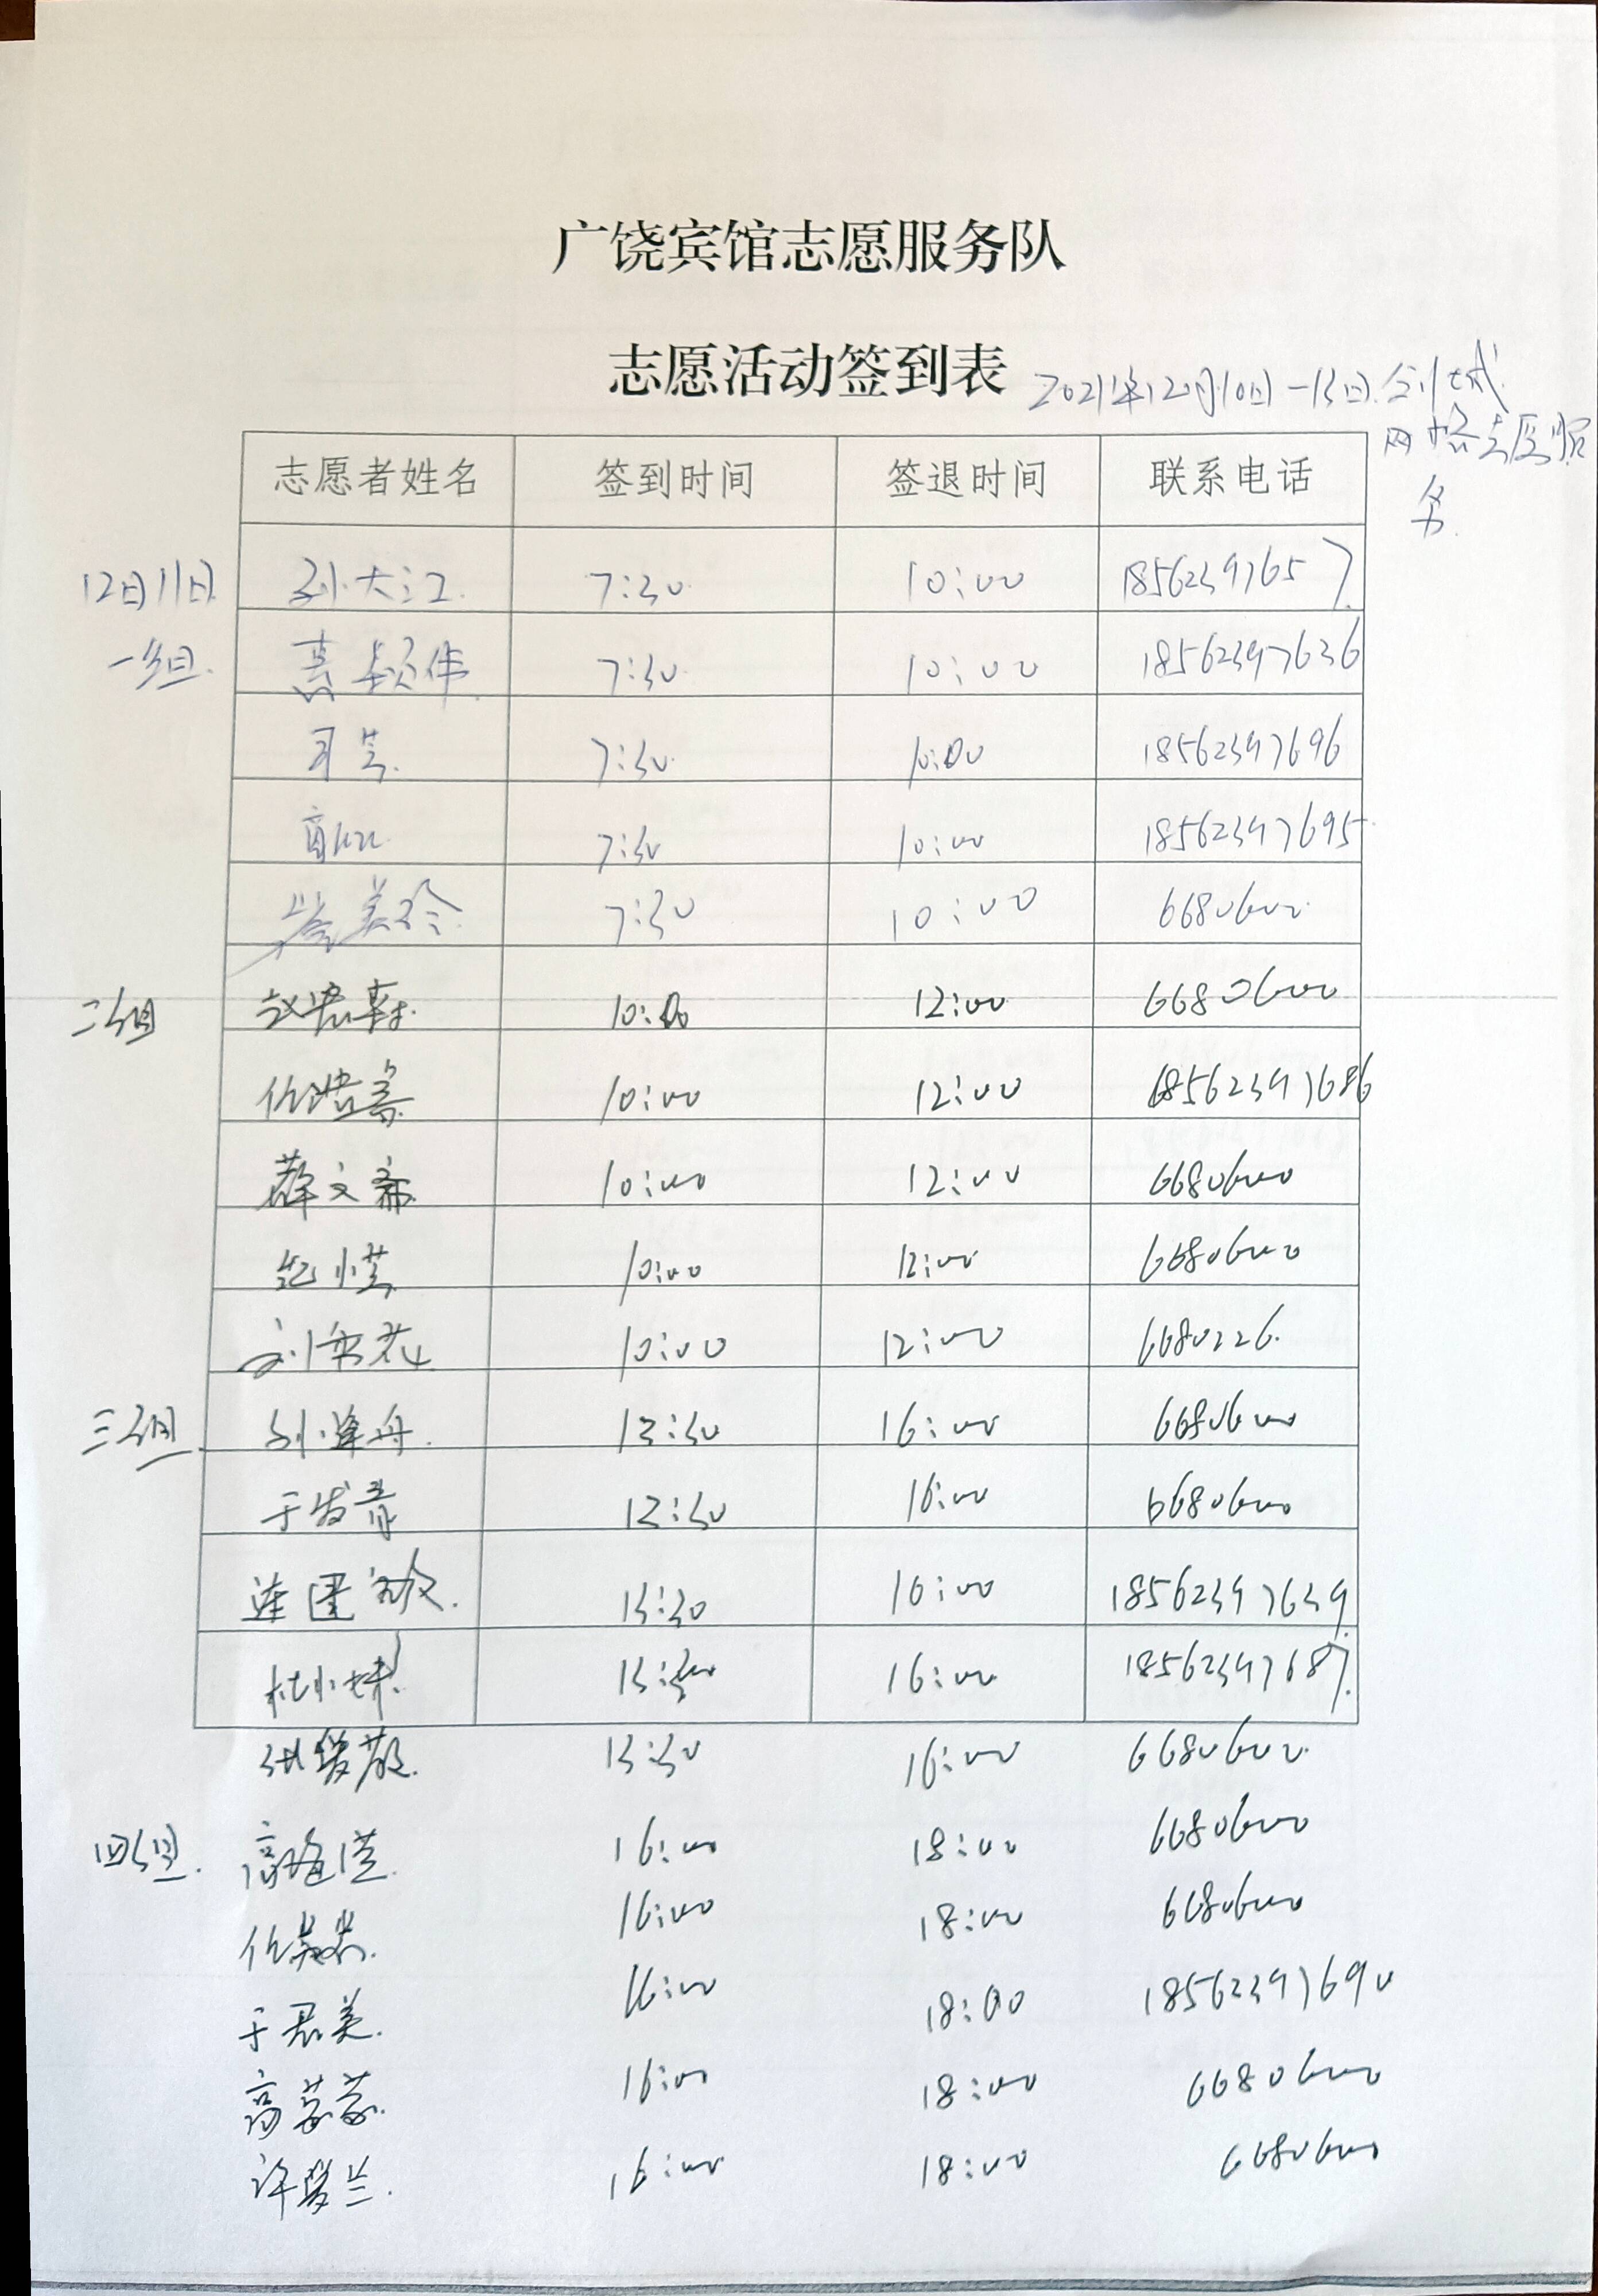 广饶宾馆志愿服务队
志愿活动签到表 2021年12月10日-13日创城
网格志愿服
务
志愿者姓名 签到时间 签退时间 联系电话
12月11日 孙大江 7:30 10:00 18562397657
一组 7:30 10:00 18562397636
7:30 10:00 18562397696
7:30 10:00 18562397695
美玲 7:30 10:00 6680600
二组 10:00 12:00 6680600
任浩 10:00 12:00 18562397686
薛文 10:00 12:00 6680600
10:00 12:00 6680600
刘 花 10:00 12:00 6680226
三组 孙 舟 13:30 16:00 6680600
于 青 13:30 16:00 6680600
13:30 16:00 18562397639
杜小妹 13:30 16:00 18562397687
13:30 16:00 6680600
四组 高 16:00 18:00 6680600
任 16:00 18:00 6680600
于君美 16:00 18:00 18562397690
高蒙蒙 16:00 18:00 6680600
许 兰 16:00 18:00 6680600